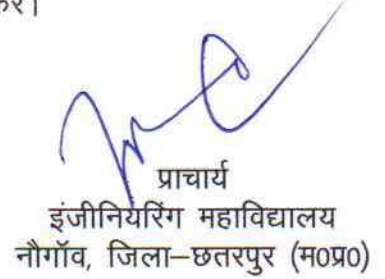 करें।
प्राचार्य
इंजीनियरिंग महाविद्यालय
नौगॉव, जिला–छतरपुर (म0प्र0)